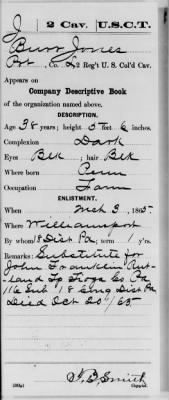 J 2 Cav. U.S.C.T.
Burr Jones
Pvt, Co. L, 2 Reg't U. S. Col'd Cav.
Appears on
Company Descriptive Book
of the organization named above.
DESCRIPTION.
Age 38 years; height 5 feet 6 inches.
Complexion Dark
Eyes Blk; hair Blk
Where born Penn
Occupation Farm
ENLISTMENT.
When Mch 3, 1865.
Where Williamsport
By whom 18 Dist Pa; term yrs.
Remarks: Substitute for
John Franklin Rut-
land Tp Tioga Co Pa
116 Sub 18 Cong Dist Pa
Died Oct 20/65
Copyist.